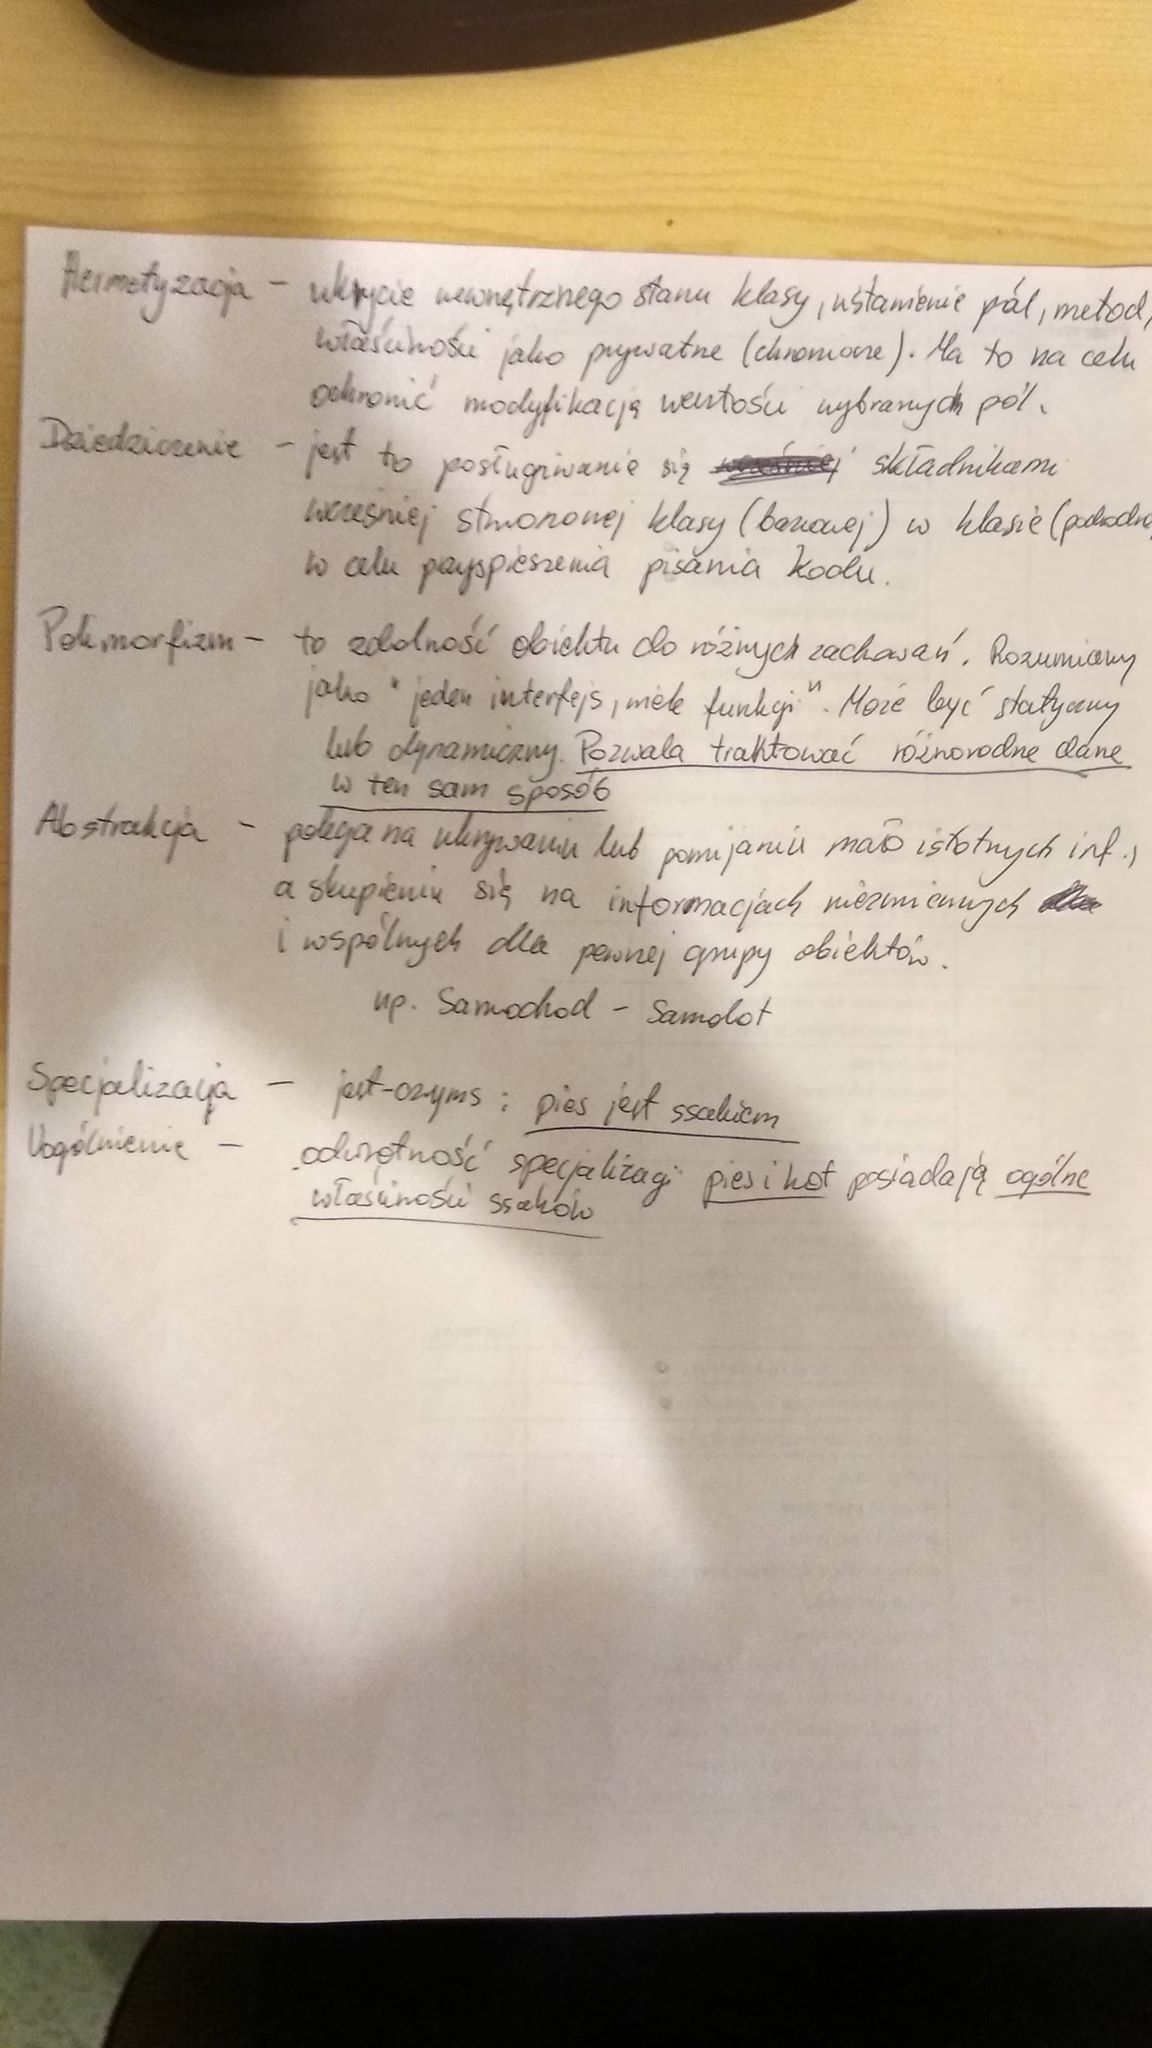 Hermetyzacja - ukrycie wewnętrznego stanu klasy, ustawienie pól, metod,
właściwości jako prywatne (chronione). Ma to na celu
ochronić modyfikacją wartości wybranych pól.
Dziedziczenie - jest to posługiwanie się składnikami
wcześniej stworzonej klasy (bazowej) w klasie
w celu przyspieszenia pisania kodu.
Polimorfizm - to zdolność obiektu do różnych zachowań. Rozumiany
jako "jeden interfejs, wiele funkcji". Może być statyczny
lub dynamiczny. Pozwala traktować różnorodne dane
w ten sam sposób
Abstrakcja - polega na ukrywaniu lub pomijaniu mało istotnych inf.,
a skupieniu się na informacjach niezmiennych
i wspólnych dla pewnej grupy obiektów.
np. Samochod - Samolot
Specjalizacja - jest-czyms : pies jest ssakiem
Uogólnienie - odwrotność specjalizacji pies i kot posiadają ogólne
właściwości ssaków